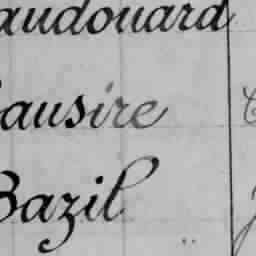 audouard
ausire
Bazil